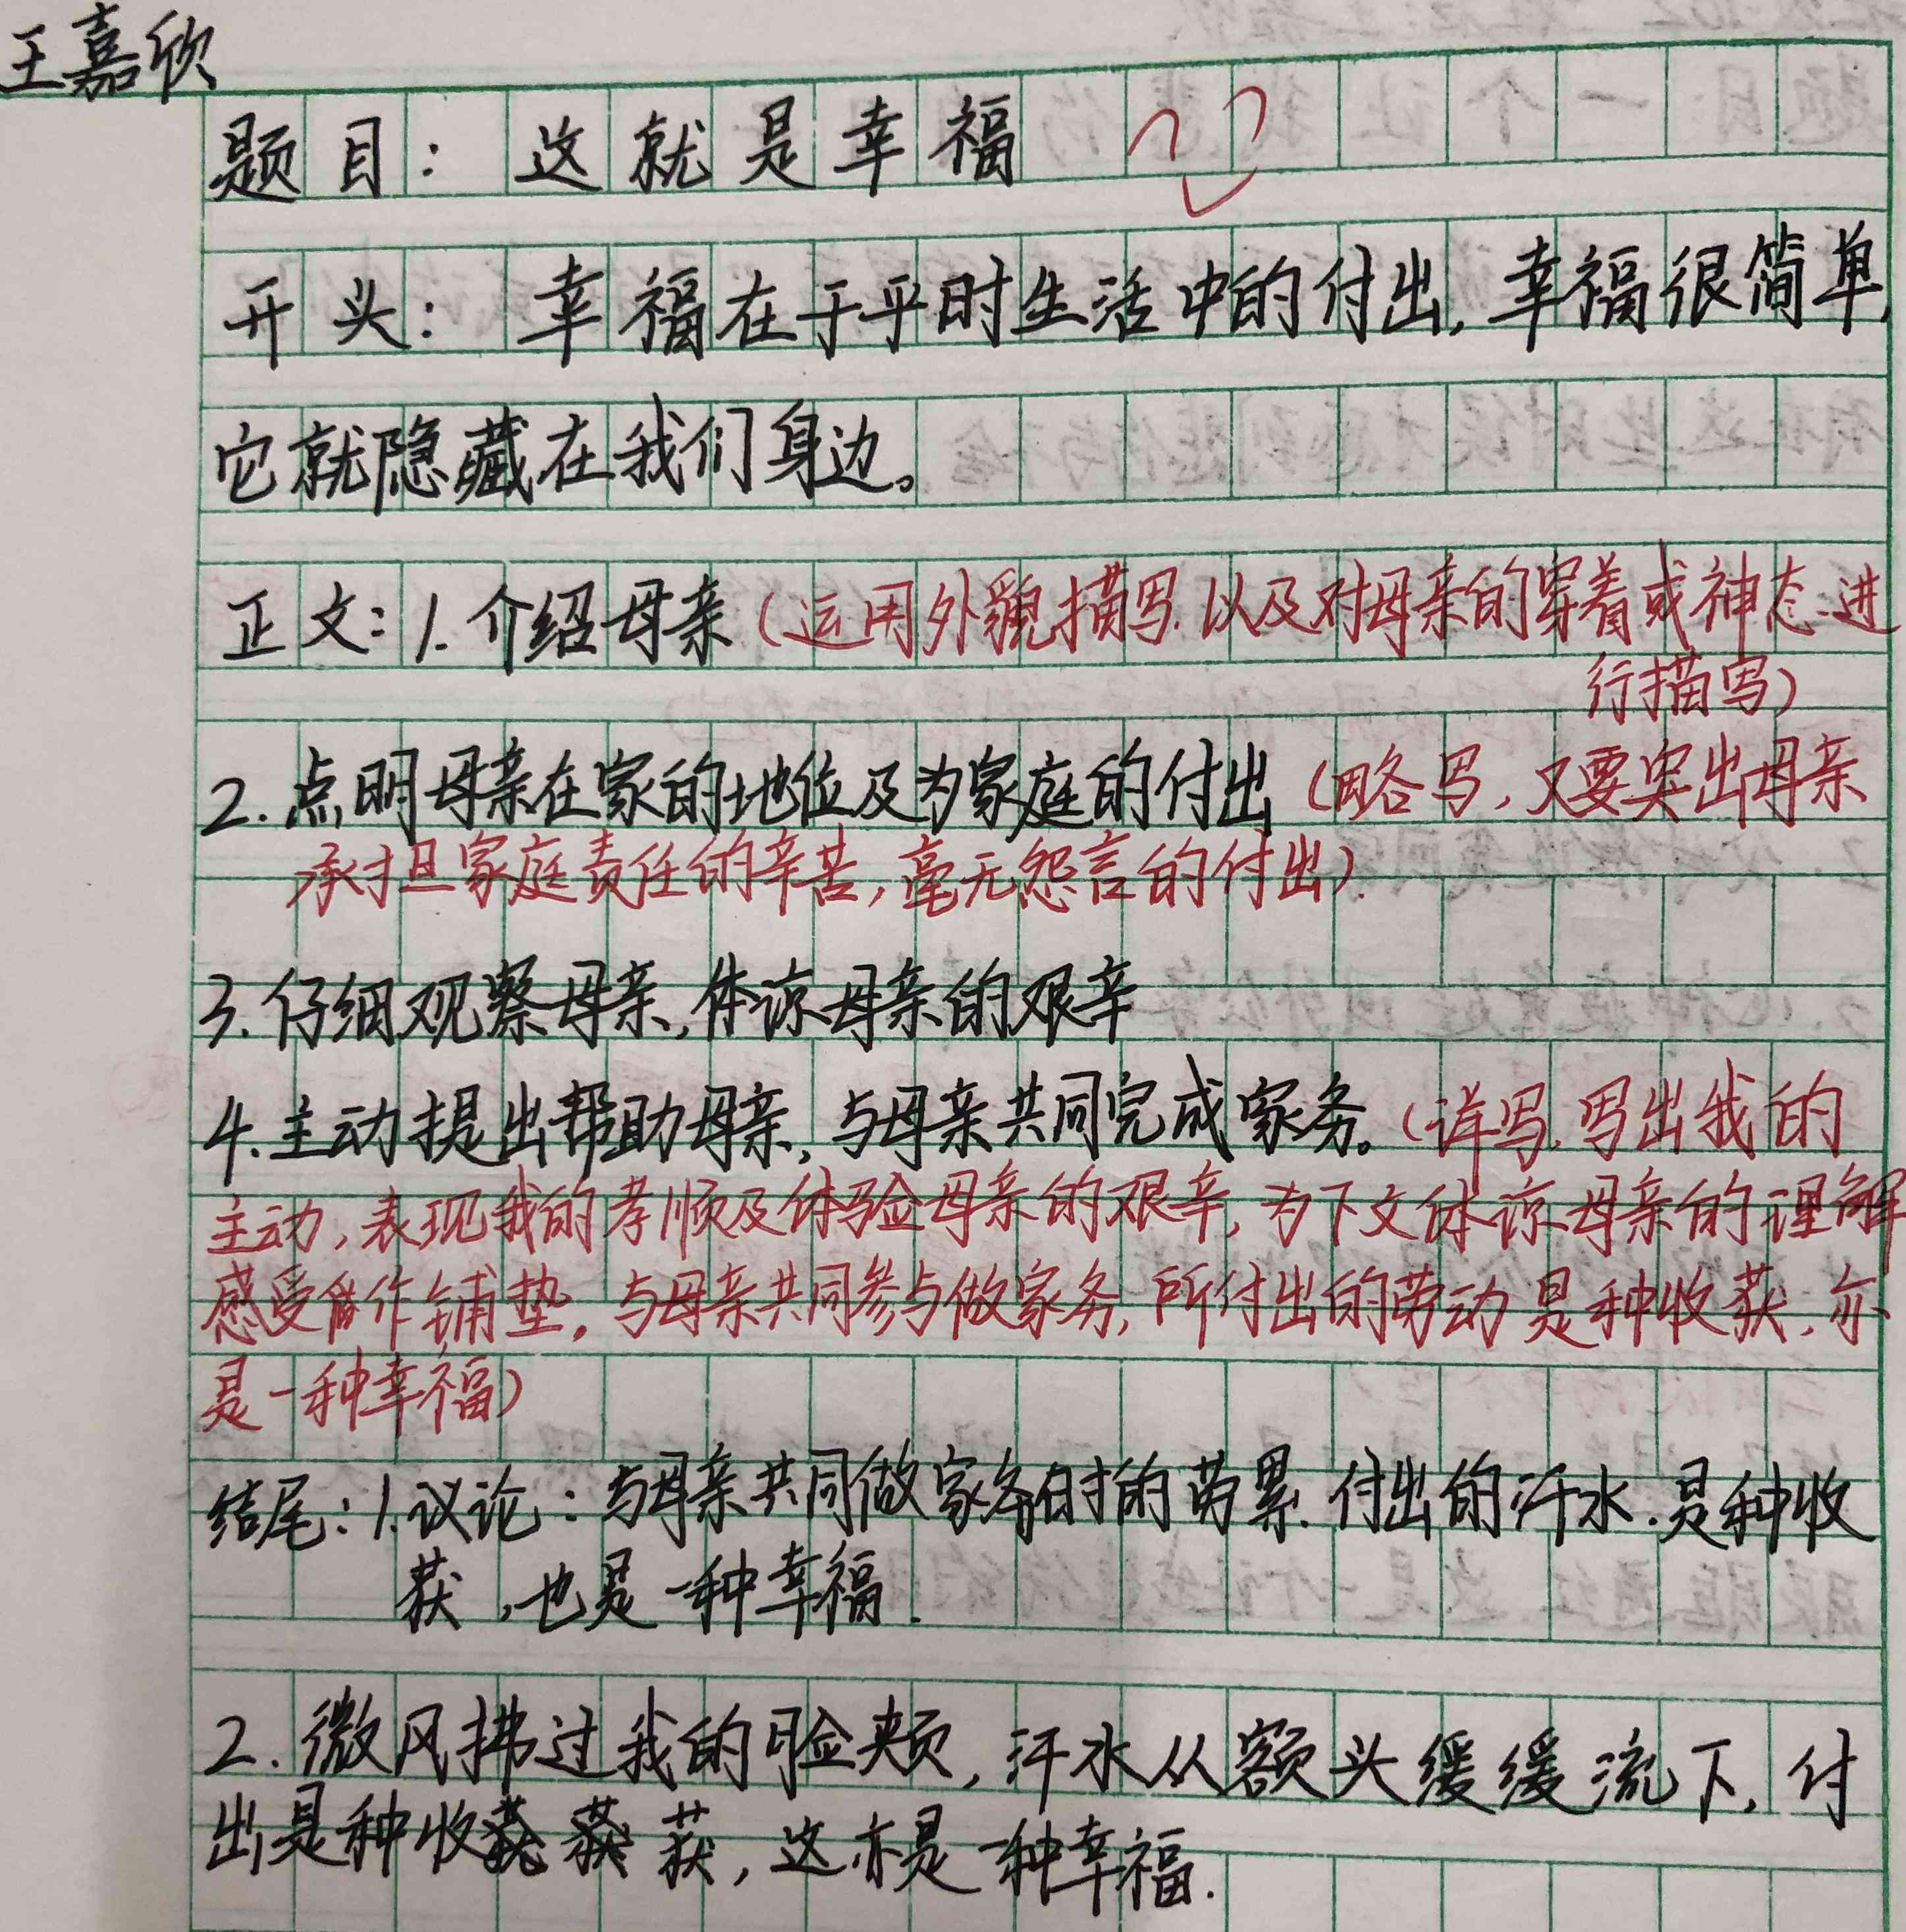 王嘉欣
题目：这就是幸福
开头：幸福在于平时生活中的付出，幸福很简单，
它就隐藏在我们身边。
正文：1.介绍母亲（运用外貌描写.以及对母亲的穿着或神态进
行描写）
2.点明母亲在家的地位及为家庭的付出（略写，又要突出母亲
承担家庭责任的辛苦，毫无怨言的付出）
3.仔细观察母亲，体谅母亲的艰辛
4.主动提出帮助母亲，与母亲共同完成家务。（详写.写出我的
主动，表现我的孝顺及体验母亲的艰辛，为下文体谅母亲的理解
感受作铺垫，与母亲共同参与做家务，所付出的劳动是种收获，亦
是一种幸福）
结尾：1.议论：与母亲共同做家务时的劳累.付出的汗水.是种收
获，也是一种幸福.
2.微风拂过我的脸颊，汗水从额头缓缓流下，付
出是种收获，这亦是一种幸福.